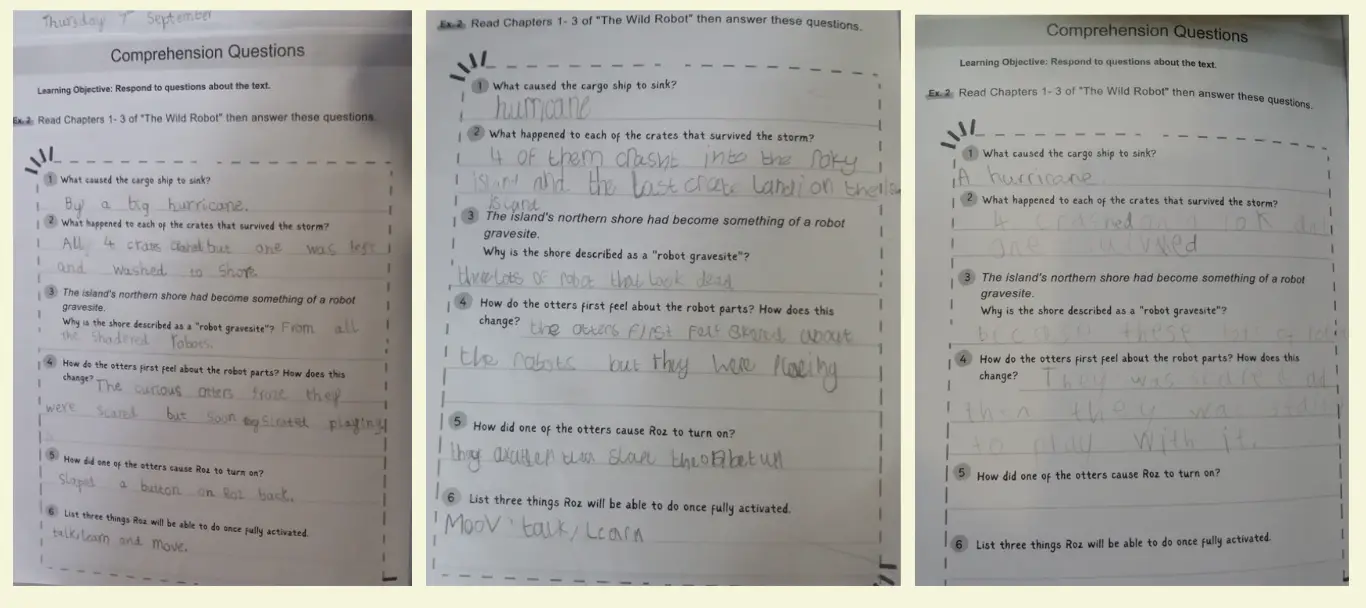 Thursday 7 September
Comprehension Questions
Learning Objective: Respond to questions about the text.
Ex.2 Read Chapters 1- 3 of "The Wild Robot" then answer these questions
1 What caused the cargo ship to sink?
By a big hurricane.
2 What happened to each of the crates that survived the storm?
All 4 crats but one was left
and washed to shore
3 The island's northern shore had become something of a robot
gravesite.
Why is the shore described as a "robot gravesite"? From all
the shadered robots.
4 How do the otters first feel about the robot parts? How does this
change? The curious otters froze they
were scared but soon playing
5 How did one of the otters cause Roz to turn on?
Slaped a button on Roz back.
6 List three things Roz will be able to do once fully activated.
talk, learn and move.
Ex.2 Read Chapters 1- 3 of "The Wild Robot" then answer these questions.
1 What caused the cargo ship to sink?
hurricane
2 What happened to each of the crates that survived the storm?
4 of them crasht into the roky
island and the last crate land on the
island
3 The island's northern shore had become something of a robot
gravesite.
Why is the shore described as a "robot gravesite"?
lots of robot that look dead
4 How do the otters first feel about the robot parts? How does this
change? the otters first felt skared about
the robots but they were placing
5 How did one of the otters cause Roz to turn on?
6 List three things Roz will be able to do once fully activated.
Moov talk, Learn
Comprehension Questions
Learning Objective: Respond to questions about the text.
Ex.2 Read Chapters 1- 3 of "The Wild Robot" then answer these questions.
1 What caused the cargo ship to sink?
A hurricane
2 What happened to each of the crates that survived the storm?
4 crashed
one
3 The island's northern shore had become something of a robot
gravesite.
Why is the shore described as a "robot gravesite"?
lots of
4 How do the otters first feel about the robot parts? How does this
change? They was
then they wa
to play with it.
5 How did one of the otters cause Roz to turn on?
6 List three things Roz will be able to do once fully activated.